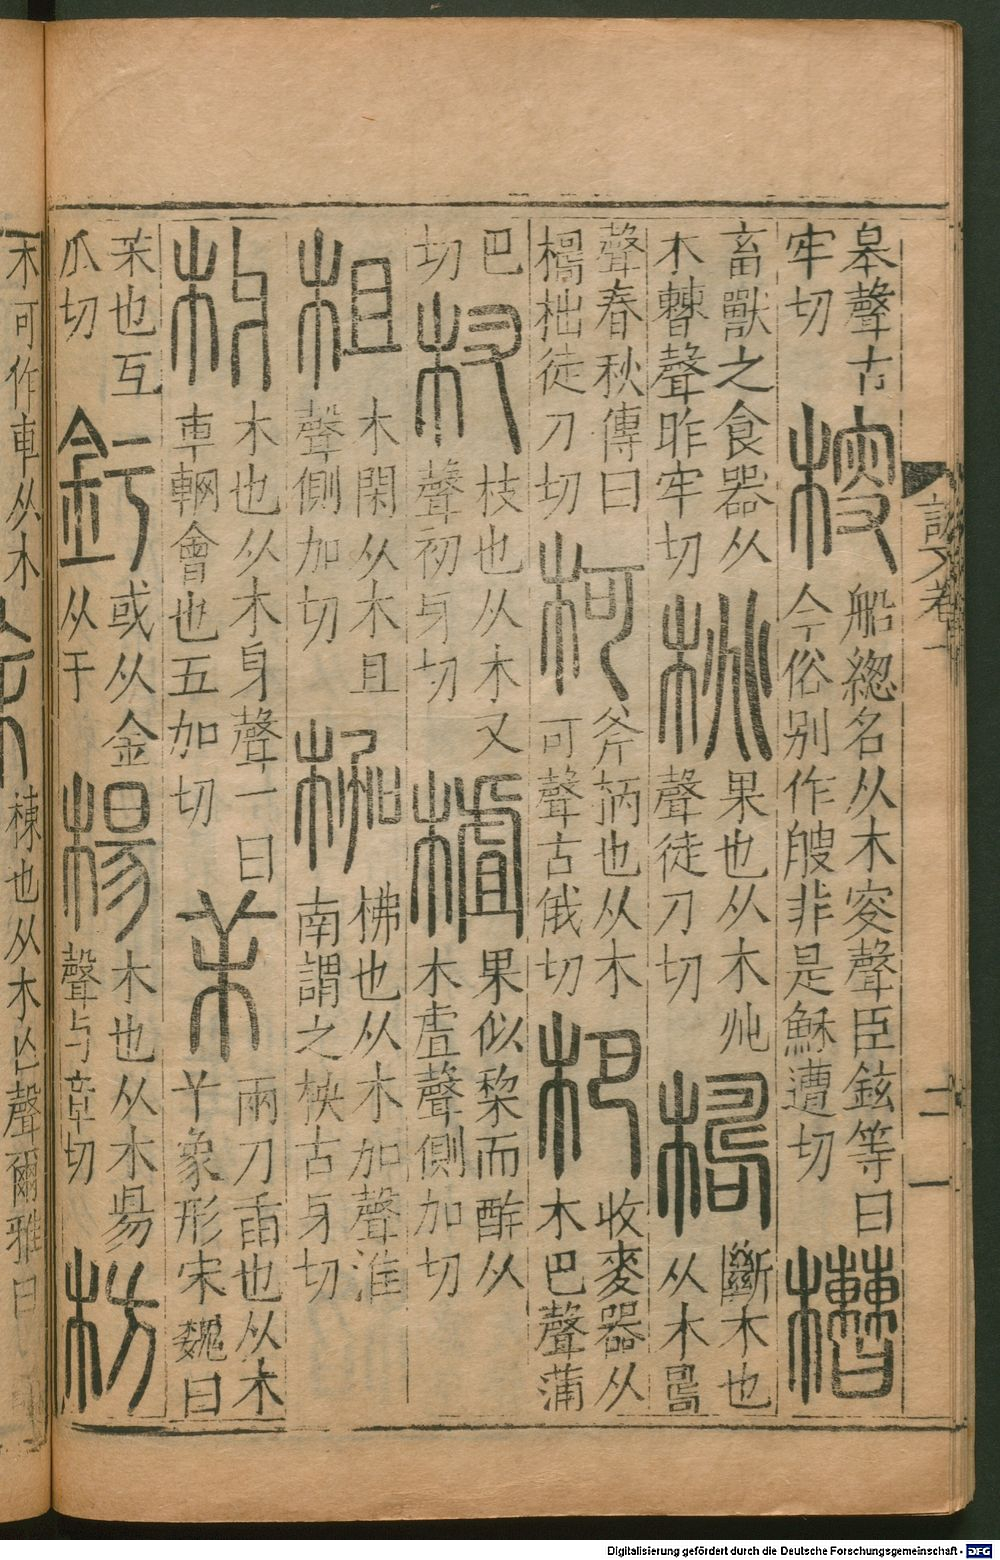 皋聲古
牢切
㮴
船總名从木叜聲臣鉉等曰
今俗别作艘非是穌遭切
槽
畜獸之食器从
木㯥聲昨牢切
桃
果也从木兆
聲徒刀切
檮
斷木也
从木𠷎
聲春秋傳曰
檮柮徒刀切
柯
斧柄也从木
可聲古俄切
杷
收麥器从
木巴聲蒲
巴
切
杈
枝也从木叉
聲初牙切
樝
果似棃而酢从
木虘聲側加切
柤
木閑从木且
聲側加切
枷
柫也从木加聲淮
南謂之柍古牙切
枒
木也从木牙聲一曰
車輞會也五加切
茉
兩刃臿也从木
丫象形宋魏曰
茉也互
瓜切
釫
或从金
从于
楊
木也从木昜
聲与章切
枋
木可作車从木
棟也从木亡聲爾雅曰
說文卷
二一
Digitalisierung gefördert durch die Deutsche Forschungsgemeinschaft - DFG